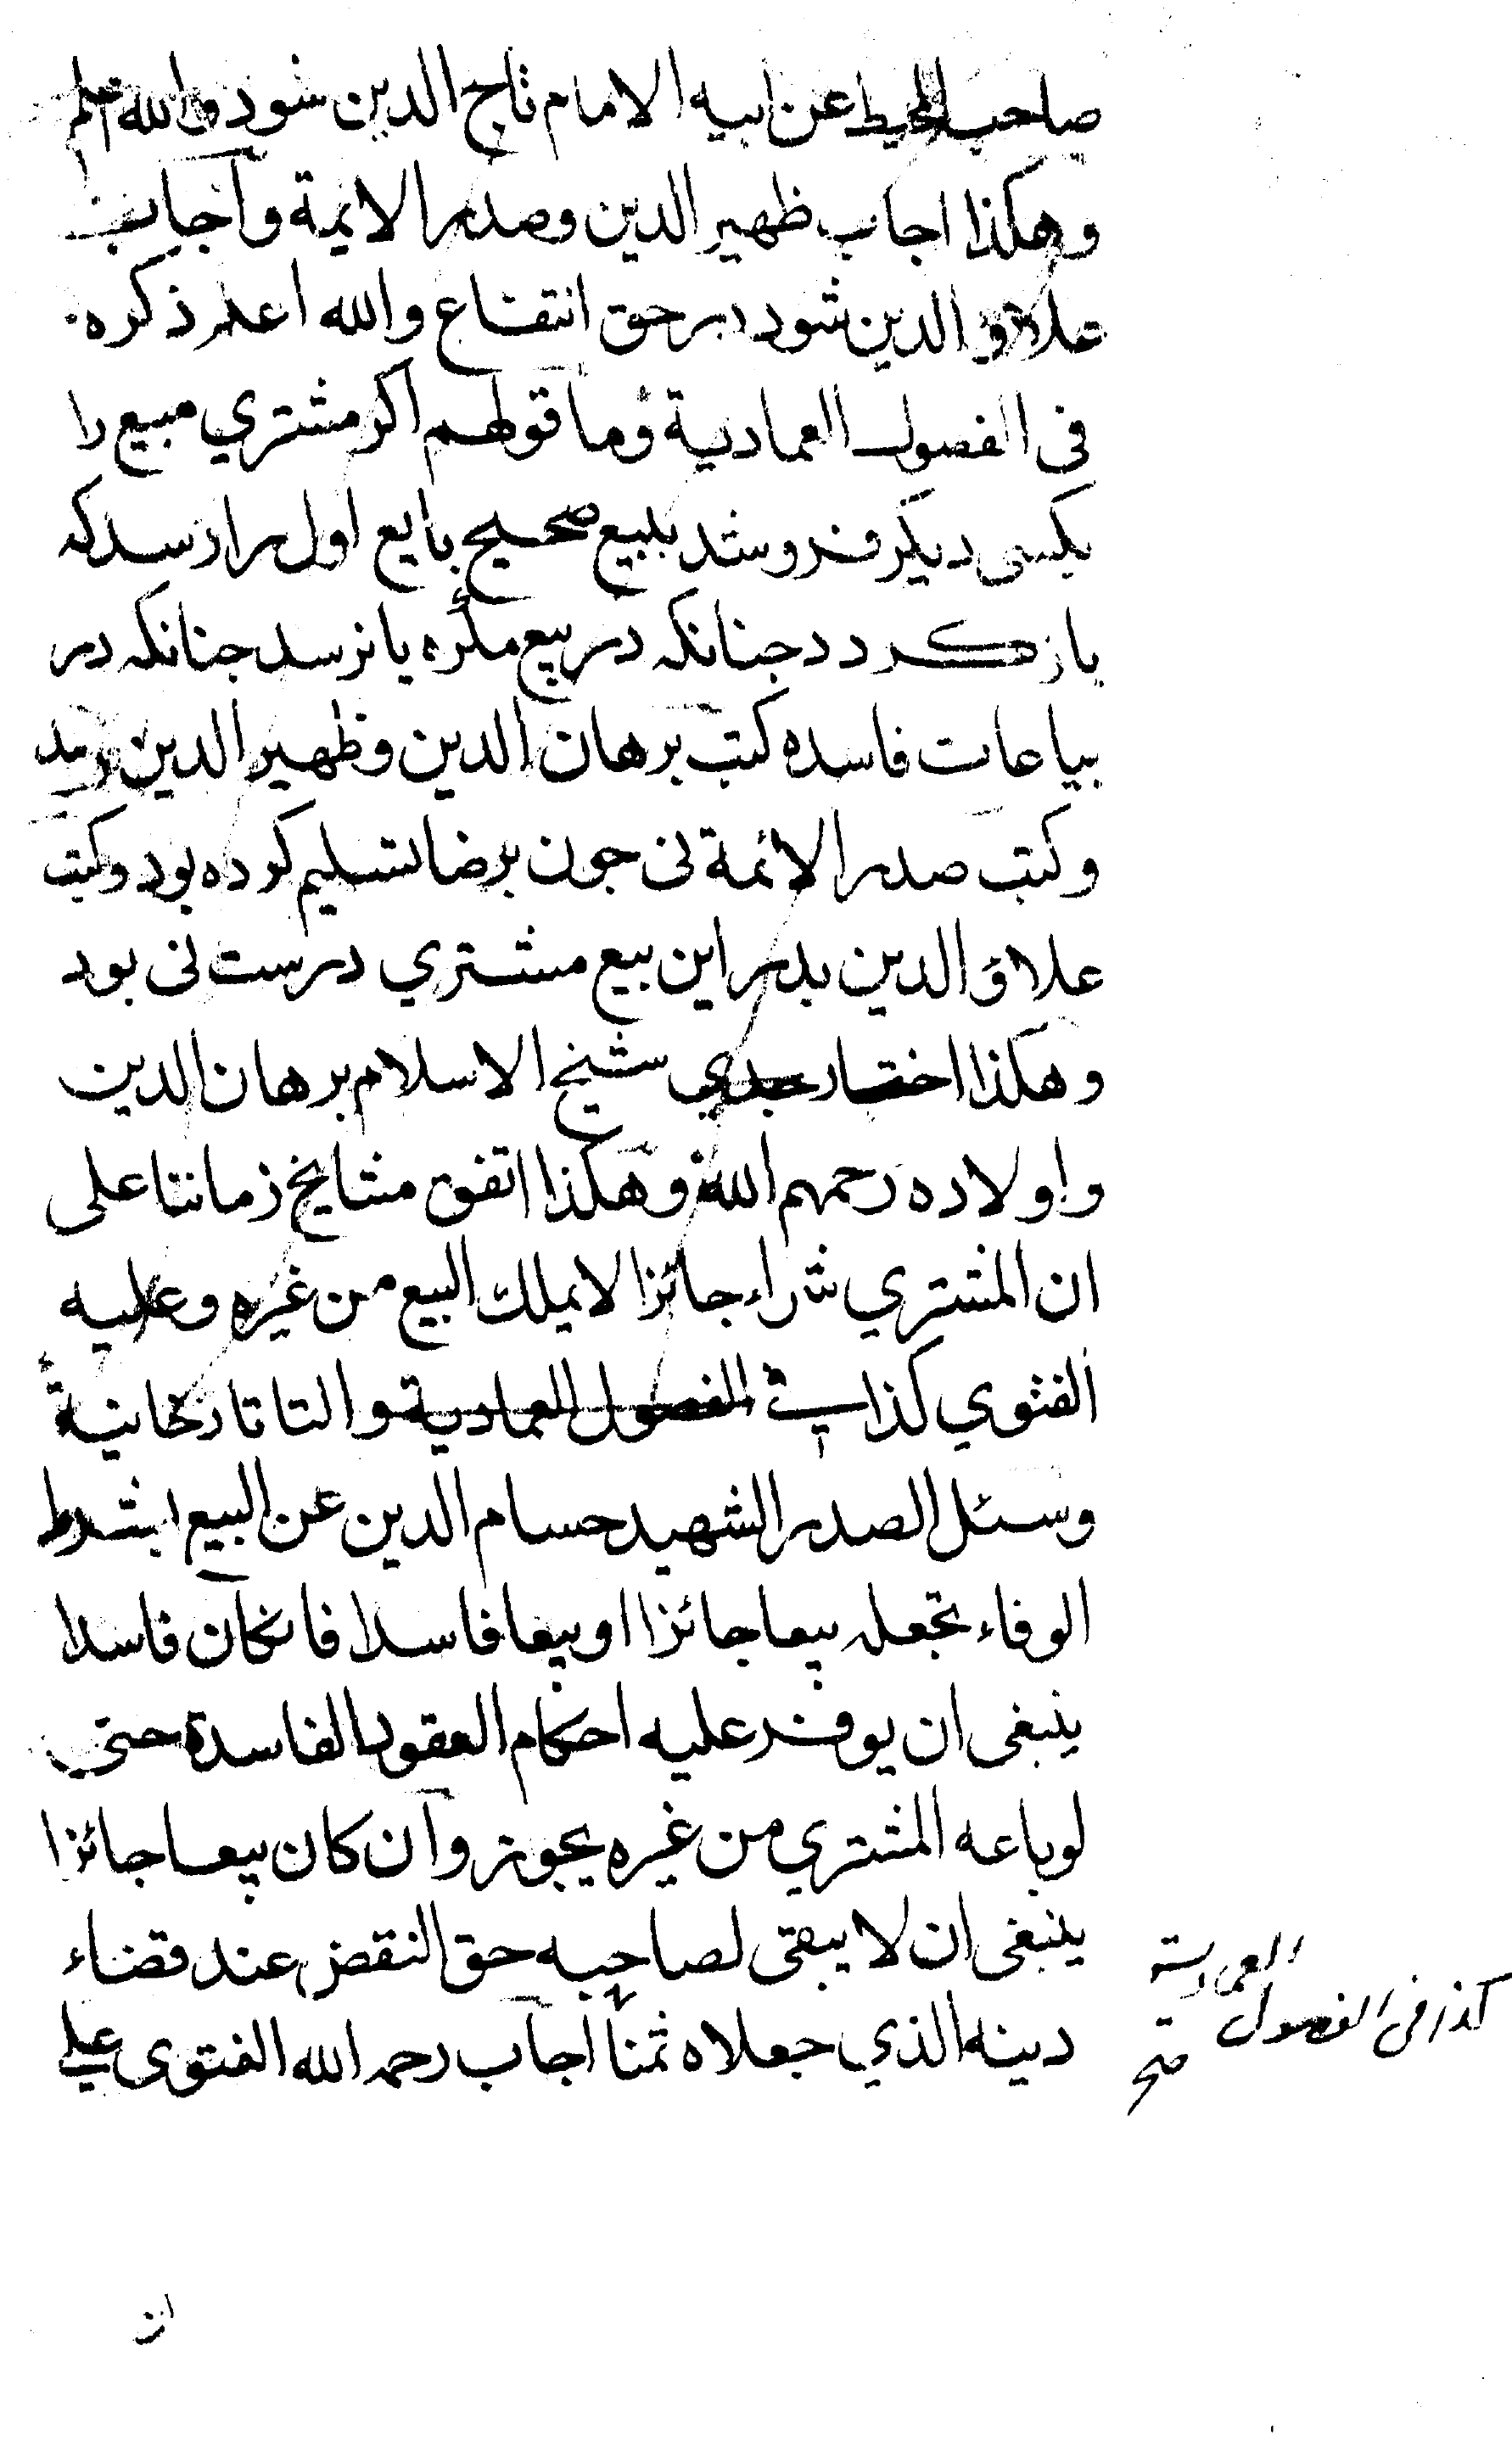 صاحب المحيط عن ابيه الامام تاج الدين شود والله اعلم
وهكذا اجاب ظهير الدين وصدر الايمة واجاب
علاؤ الدين شود در حق انتفاع والله اعلم ذكره
فى الفصول العمادية وما قولهم اكر مشتري مبيع را
بكسى ديكر فروشد ببيع صحيح بايع اول را رسد كه
باز كردد جنانكه در بيع مكره يا نرسد جنانكه در
بياعات فاسده كتب برهان الدين وظهير الدين رسد
وكتب صدر الائمة نى جون برضا تسليم كرده بود وكتب
علاؤ الدين بدر اين بيع مشتري درست نى بود
وهكذا اختار جدي شيخ الاسلام برهان الدين
واولاده رحمهم الله وهكذا اتفق مشايخ زماننا على
ان المشتري شراء جائزا لا يملك البيع من غيره وعليه
الفتوي كذا في الفصول العمادية والتاتارخانية
وسئل الصدر الشهيد حسام الدين عن البيع بشرط
الوفاء نجعله بيعا جائزا او بيعا فاسدا فانكان فاسدا
ينبغى ان يوفر عليه احكام العقود الفاسدة حتى
لو باعه المشتري من غيره يجوز وان كان بيعا جائزا
ينبغى ان لا يبقى لصاحبه حق النقض عند قضاء
دينه الذي جعلاه ثمنا اجاب رحمه الله الفتوى على
كذا فى الفصول العمادية
صح